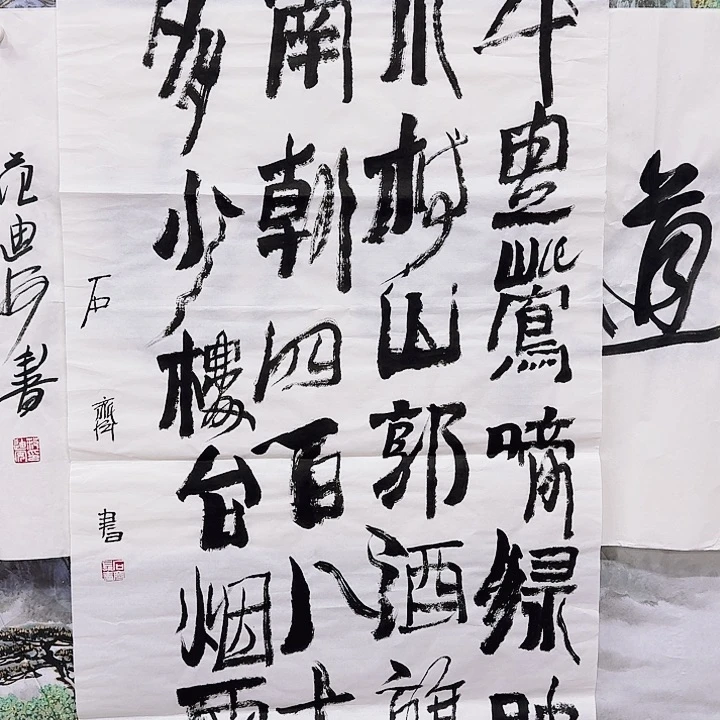 道
千里鶯啼绿映
水村山郭酒旗
南朝四百八十
多少樓台烟雨
石齊書
范迪安書